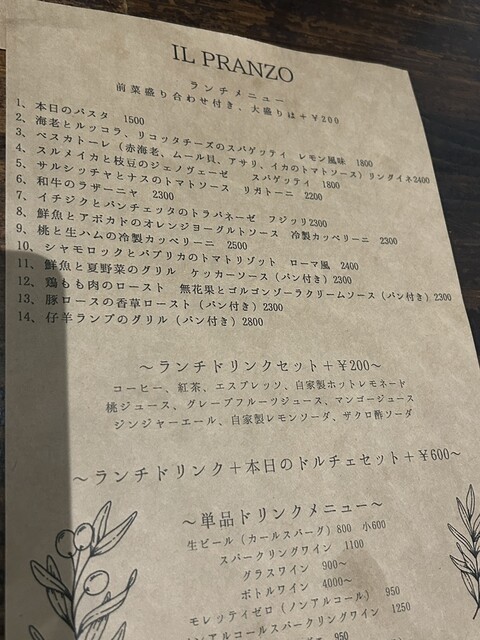 IL PRANZO
ランチメニュー
前菜盛り合わせ付き、大盛りは+¥200
1、本日のパスタ 1500
2、海老とルッコラ、リコッタチーズのスパゲッティ レモン風味 1800
3、ペスカトーレ(赤海老、ムール貝、アサリ、イカのトマトソース)リングイネ2400
4、スルメイカと枝豆のジェノヴェーゼ スパゲッティ 1800
5、サルシッチャとナスのトマトソース リガトーニ 2200
6、和牛のラザーニャ 2300
7、イチジクとパンチェッタのトラパネーゼ フジッリ2300
8、鮮魚とアボカドのオレンジヨーグルトソース 冷製カッペリーニ 2300
9、桃と生ハムの冷製カッペリーニ 2500
10、シャモロックとパプリカのトマトリゾット ローマ風 2400
11、鮮魚と夏野菜のグリル ケッカーソース(パン付き)2300
12、鶏もも肉のロースト 無花果とゴルゴンゾーラクリームソース(パン付き)2300
13、豚ロースの香草ロースト(パン付き)2300
14、仔羊ランプのグリル(パン付き)2800
～ランチドリンクセット+¥200～
コーヒー、紅茶、エスプレッソ、自家製ホットレモネード
桃ジュース、グレープフルーツジュース、マンゴージュース
ジンジャーエール、自家製レモンソーダ、ザクロ酢ソーダ
～ランチドリンク+本日のドルチェセット+¥600～
～単品ドリンクメニュー～
生ビール(カールスバーグ)800 小600
スパークリングワイン 1100
グラスワイン 900～
ボトルワイン 4000～
モレッティゼロ(ノンアルコール) 950
ノンアルコールスパークリングワイン 1250
950